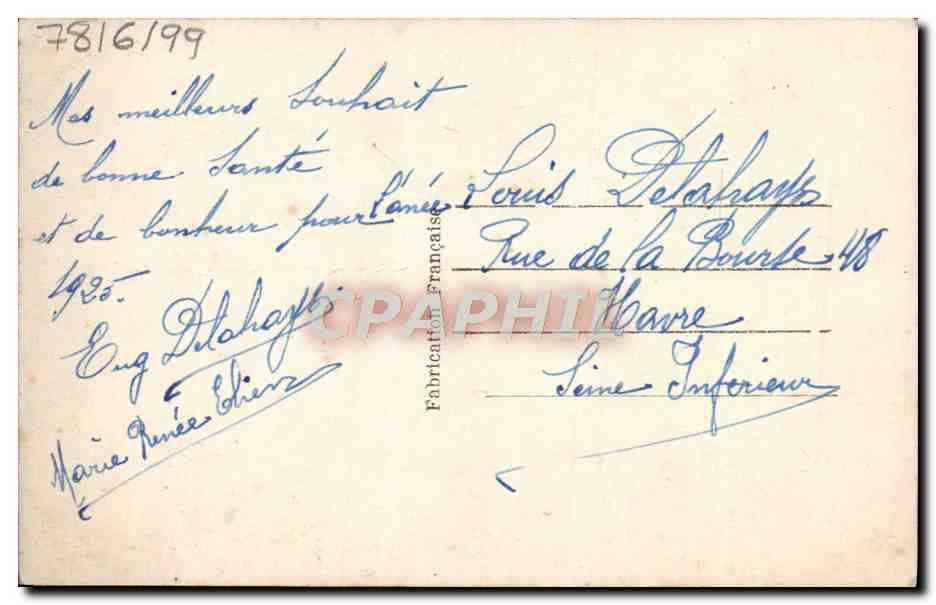 78/6/99
Mes meilleurs Souhait
de bonne Santé
et de bonheur pour l'anée
1925.
Eug Delahays
Marie Renée Etienz
Fabrication Française
Louis Delahays
Rue de la Bourse 48
Havre
Seine Inferieur
CPAPHIL